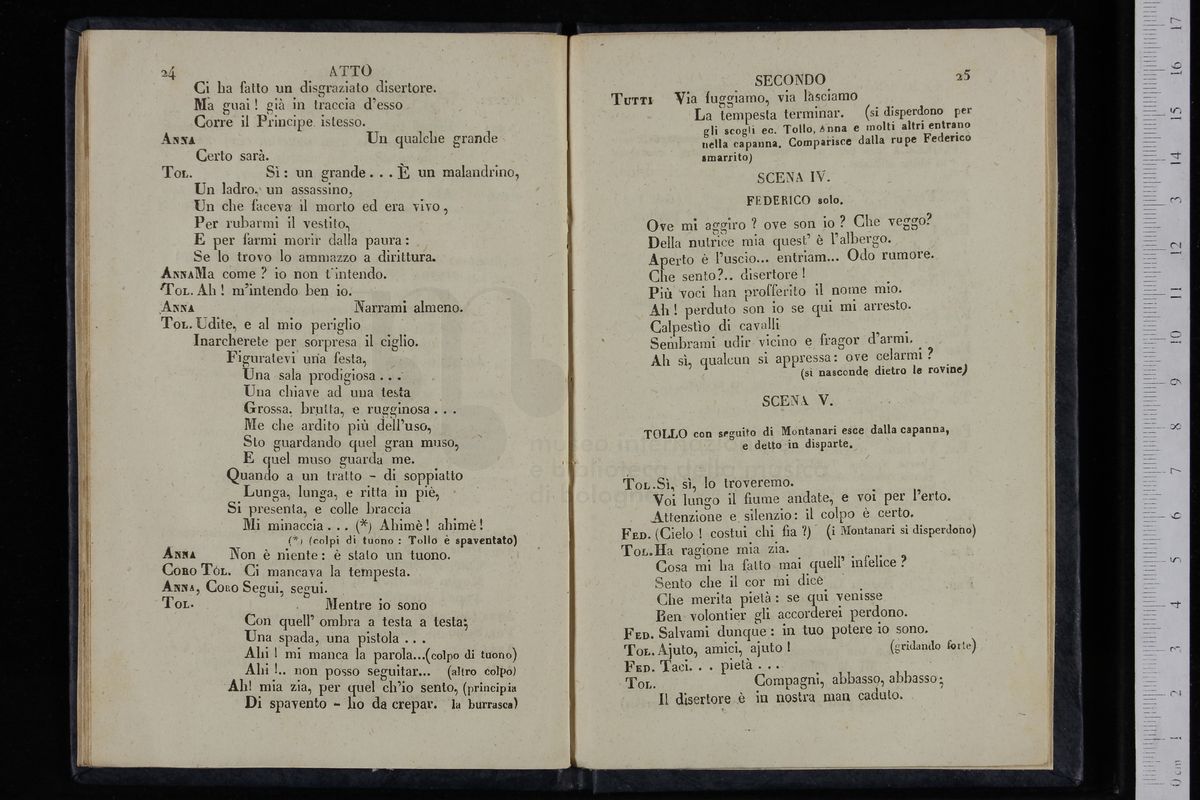 24 ATTO
Ci ha fatto un disgraziato disertore.
Ma guai! già in traccia d'esso
Corre il Principe istesso.
ANNA Un qualche grande
Certo sarà.
TOL. Sì: un grande... È un malandrino,
Un ladro, un assassino,
Un che faceva il morto ed era vivo,
Per rubarmi il vestito,
E per farmi morir dalla paura:
Se lo trovo lo ammazzo a dirittura.
ANNA Ma come? io non t'intendo.
TOL. Ah! m'intendo ben io.
ANNA Narrami almeno.
TOL. Udite, e al mio periglio
Inarcherete per sorpresa il ciglio.
Figuratevi una festa,
Una sala prodigiosa...
Una chiave ad una testa
Grossa, brutta, e rugginosa...
Me che ardito più dell'uso,
Sto guardando quel gran muso,
E quel muso guarda me.
Quando a un tratto - di soppiatto
Lunga, lunga, e ritta in piè,
Si presenta, e colle braccia
Mi minaccia... (*) Ahimè! ahimè!
(*) (colpi di tuono: Tollo è spaventato)
ANNA Non è niente: è stato un tuono.
CORO TOL. Ci mancava la tempesta.
ANNA, CORO Segui, segui.
TOL. Mentre io sono
Con quell' ombra a testa a testa;
Una spada, una pistola...
Ahi! mi manca la parola...(colpo di tuono)
Ahi!.. non posso seguitar... (altro colpo)
Ah! mia zia, per quel ch'io sento, (principia
Di spavento - ho da crepar. la burrasca)
SECONDO 25
TUTTI Via fuggiamo, via lasciamo
La tempesta terminar. (si disperdono per
gli scogli ec. Tollo, Anna e molti altri entrano
nella capanna. Comparisce dalla rupe Federico
smarrito)
SCENA IV.
FEDERICO solo.
Ove mi aggiro? ove son io? Che veggo?
Della nutrice mia quest' è l'albergo.
Aperto è l'uscio... entriam... Odo rumore.
Che sento?.. disertore!
Più voci han profferito il nome mio.
Ah! perduto son io se qui mi arresto.
Calpestìo di cavalli
Sembrami udir vicino e fragor d'armi.
Ah sì, qualcun si appressa: ove celarmi?
(si nasconde dietro le rovine)
SCENA V.
TOLLO con seguito di Montanari esce dalla capanna,
e detto in disparte.
TOL. Sì, sì, lo troveremo.
Voi lungo il fiume andate, e voi per l'erto.
Attenzione e silenzio: il colpo è certo.
FED. (Cielo! costui chi fia?) (i Montanari si disperdono)
TOL. Ha ragione mia zia.
Cosa mi ha fatto mai quell' infelice?
Sento che il cor mi dice
Che merita pietà: se qui venisse
Ben volontier gli accorderei perdono.
FED. Salvami dunque: in tuo potere io sono.
TOL. Ajuto, amici, ajuto! (gridando forte)
FED. Taci... pietà...
TOL. Compagni, abbasso, abbasso;
Il disertore è in nostra man caduto.
museo internazionale
e biblioteca della musica
di bologna
0 cm 1 2 3 4 5 6 7 8 9 10 11 12 13 14 15 16 17